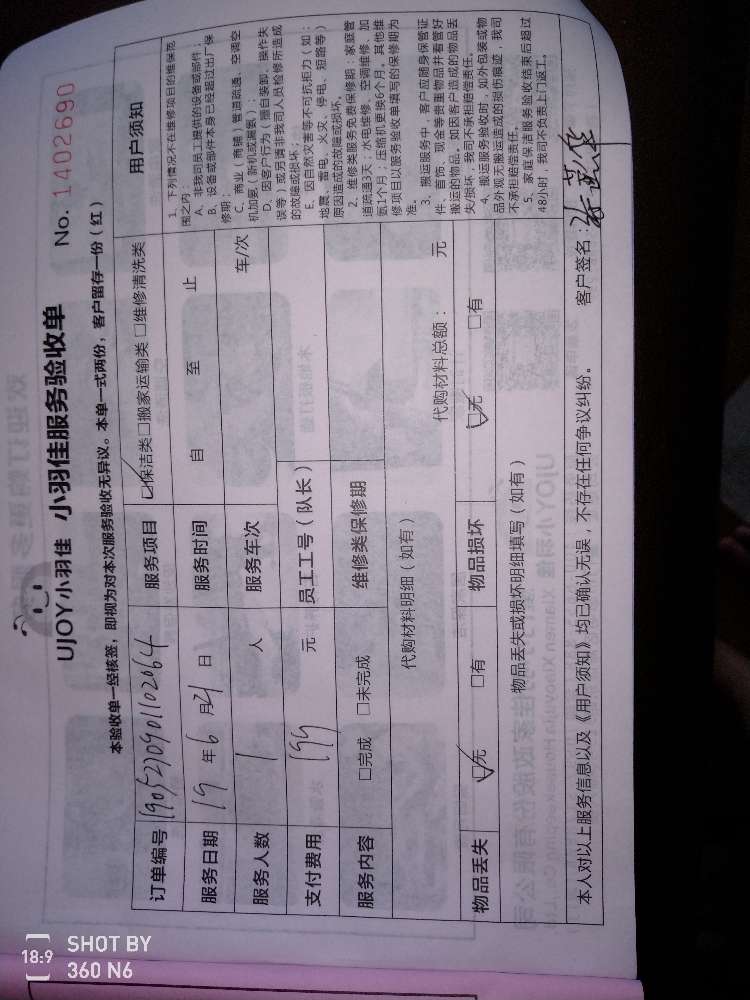 UJOY小羽佳 小羽佳服务验收单 No. 1402690
本验收单一经核签，即视为对本次服务验收无异议。本单一式两份，客户留存一份（红）
订单编号 1905270901102064 服务项目 ☑保洁类□搬家运输类□维修清洗类
服务日期 19 年 6 月 21 日 服务时间 自 至 止
服务人数 1 人 服务车次 车/次
支付费用 199 元 员工工号（队长）
服务内容 □完成 □未完成 维修类保修期
代购材料明细（如有） 代购材料总额： 元
物品丢失 ☑无 □有 物品损坏 ☑无 □有
物品丢失或损坏明细填写（如有）
用户须知
1、下列情况不在维修项目的维保范
围之内：
A、非我司员工提供的设备或部件；
B、设备或部件本身已经超过出厂保
修期；
C、商业（商铺）管道疏通、空调空
机加氨（新机或漏氨）；
D、因客户行为（擅自装卸、操作失
误等）或另请非我司人员检修所造成
的故障或损坏；
E、因自然灾害等不可抗拒力（如：
地震、雷电、火灾、停电、短路等）
原因造成的故障或损坏。
2、维修类服务免费保修期：家庭管
道疏通3天；水电维修、空调维修、加
氨1个月；压缩机更换6个月。其他维
修项目以服务验收单填写的保修期为
准。
3、搬运服务中，客户应随身保管证
件、首饰、现金等贵重物品并看管好
搬运的物品。如因客户造成的物品丢
失/损坏，我司不承担赔偿责任。
4、搬运服务验收时，如外包装或物
品外观无搬运造成的损伤痕迹，我司
不承担赔偿责任。
5、家庭保洁服务验收结束后超过
48小时，我司不负责上门返工。
本人对以上服务信息以及《用户须知》均已确认无误，不存在任何争议纠纷。 客户签名：
18:9 SHOT BY
360 N6